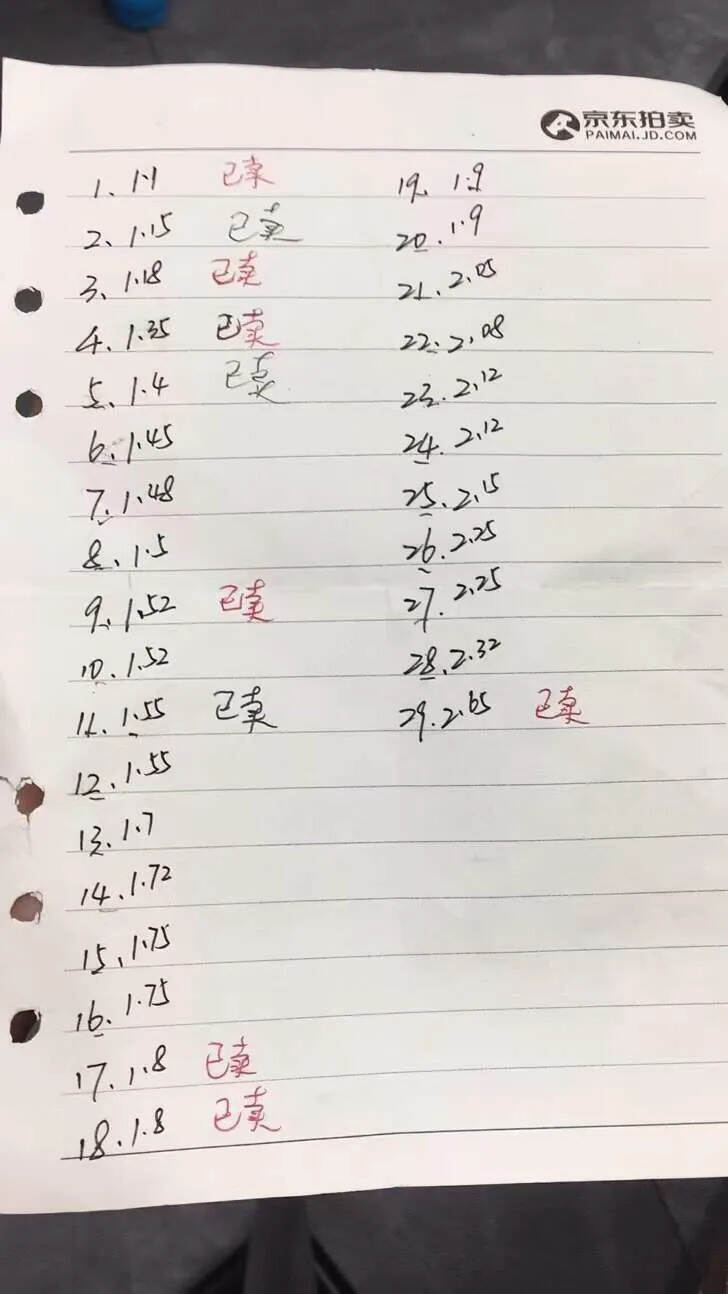 京东拍卖
PAIMAI.JD.COM
1、1.1 已卖
2、1.15 已卖
3、1.18 已卖
4、1.35 已卖
5、1.4 已卖
6、1.45
7、1.48
8、1.5
9、1.52 已卖
10、1.52
11、1.55 已卖
12、1.55
13、1.7
14、1.72
15、1.75
16、1.75
17、1.8 已卖
18、1.8 已卖
19、1.9
20、1.9
21、2.05
22、2.08
23、2.12
24、2.12
25、2.15
26、2.25
27、2.25
28、2.32
29、2.65 已卖